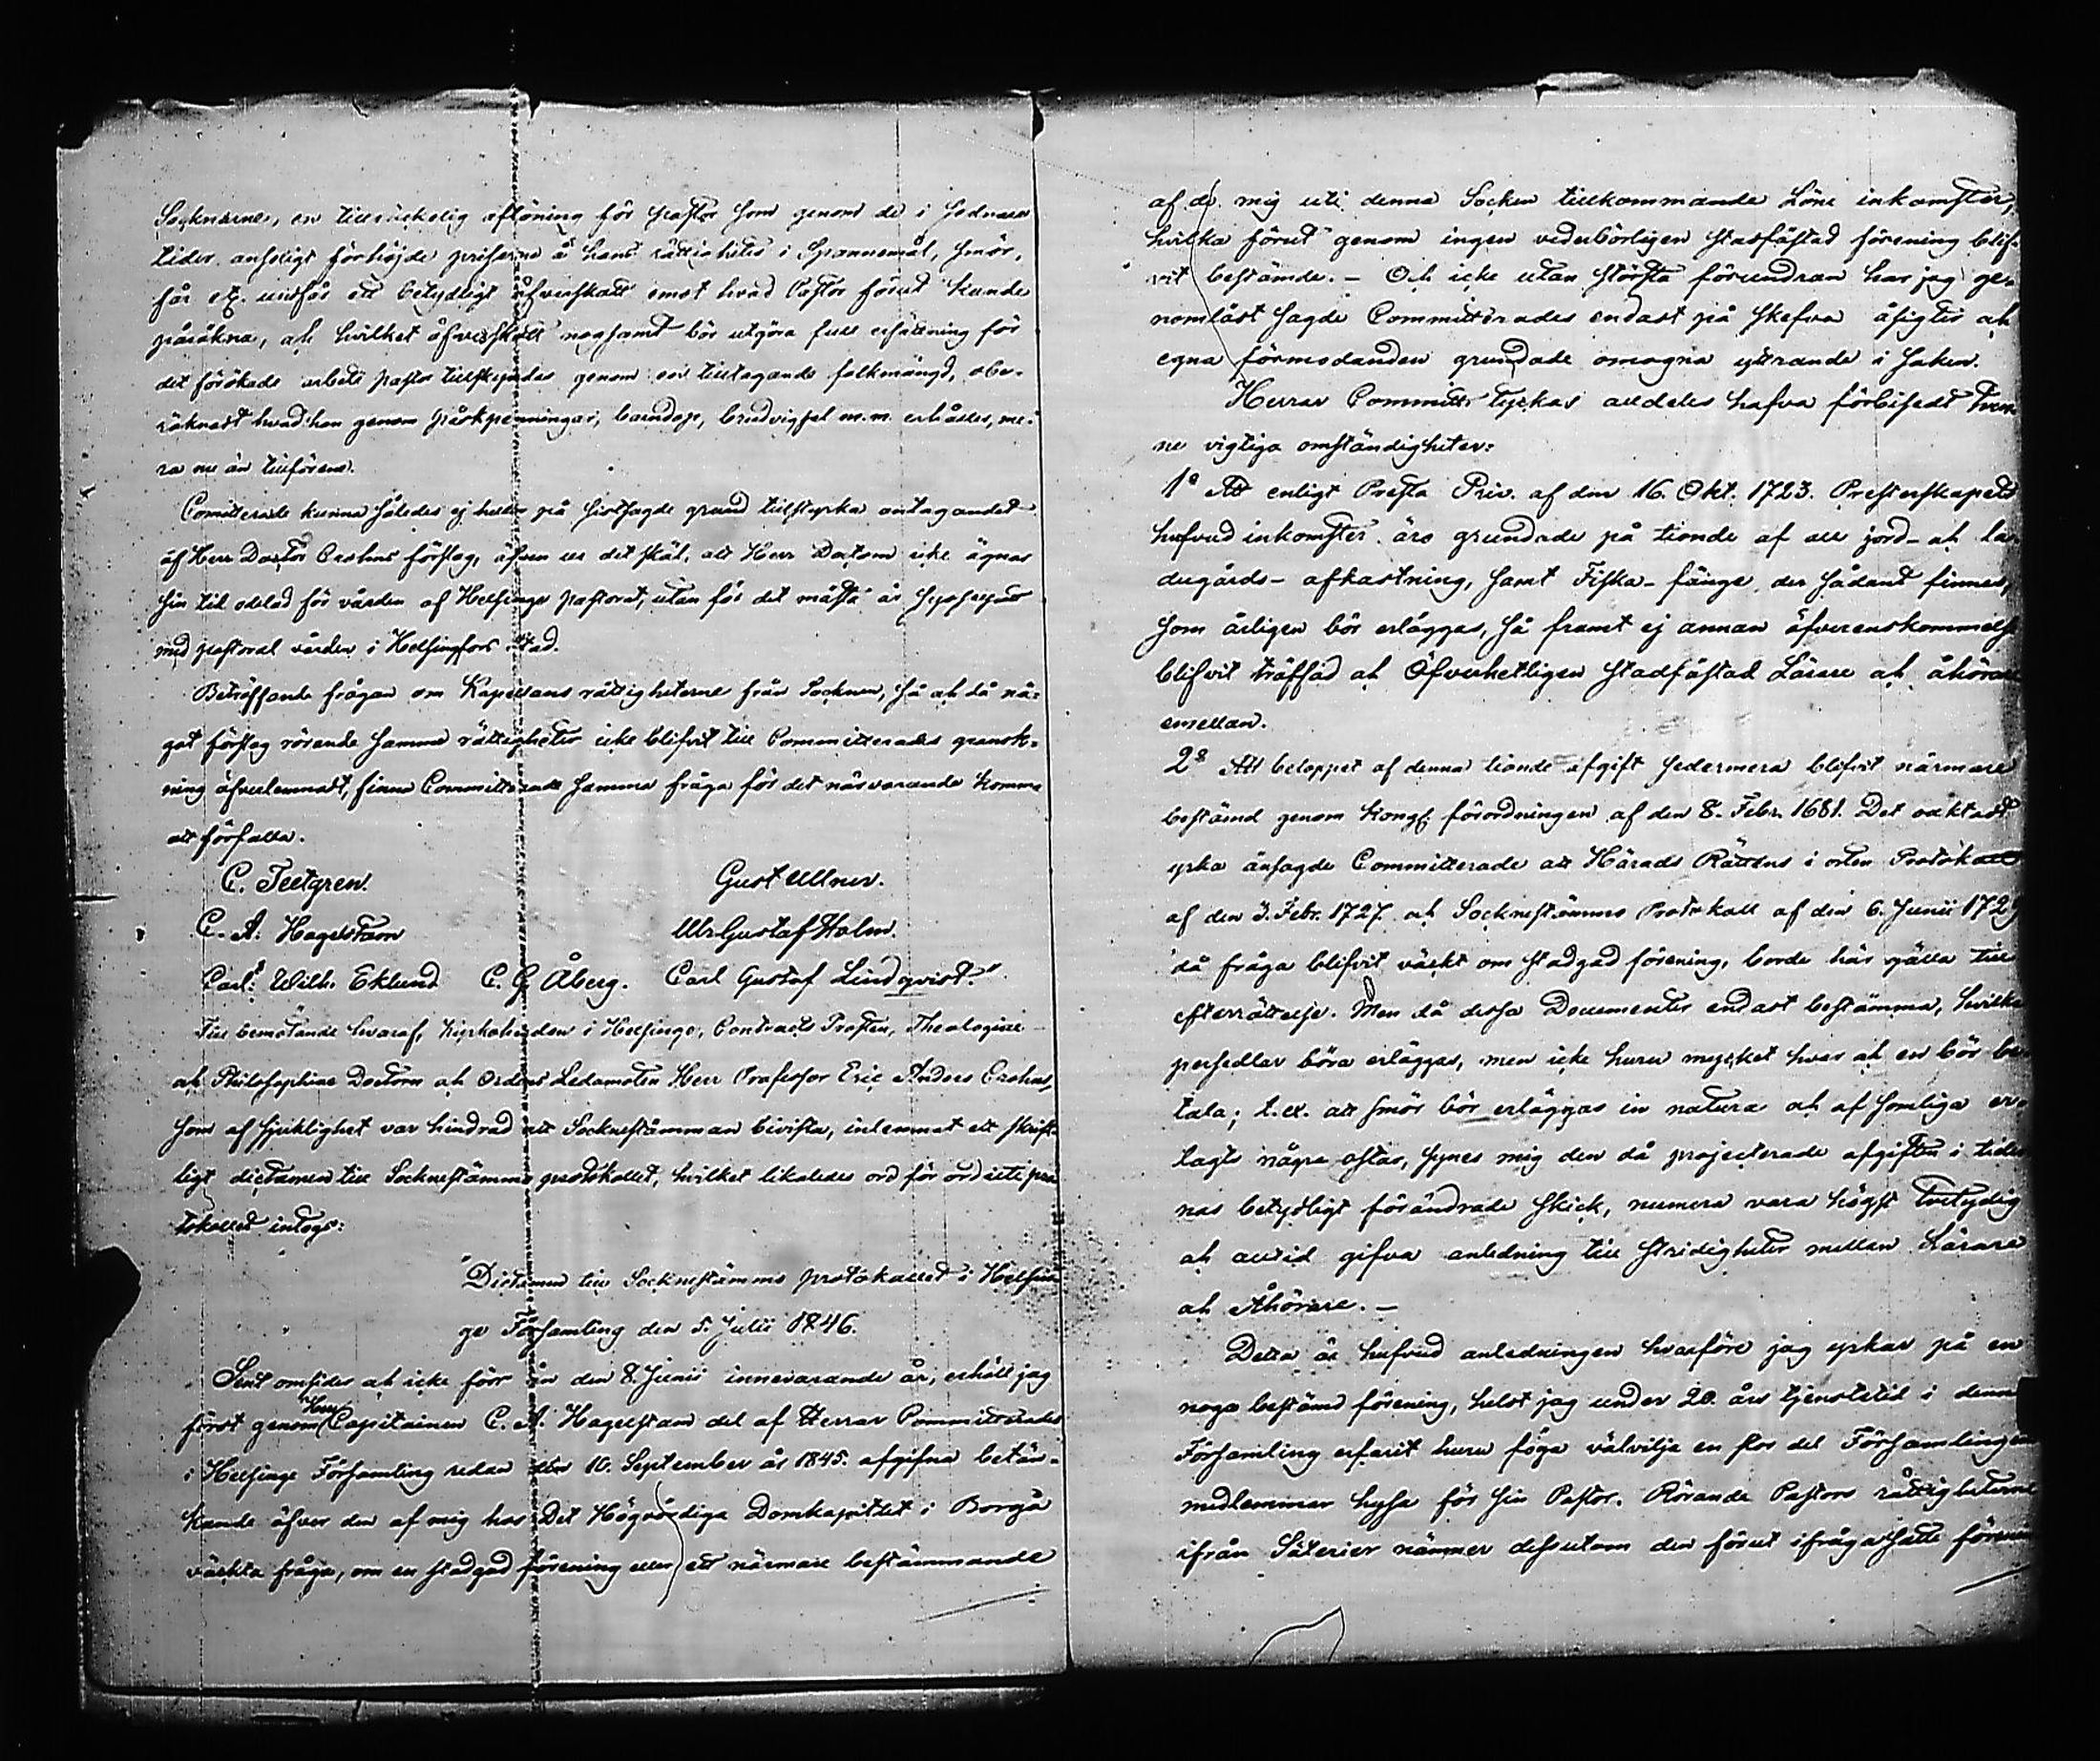 Soknarne, en tillräckelig aflöning för pastor som genom de i sednare
tider anseligt förhöjde priserne å hans rättigheter i Spannemål, smör,
får etc. undfår ett betydligt öfverskott emot hvad Pastor förut kunde
påräkna, och hvilket öfverskott nogsamt bör utgöra full ersättning för
det förökade arbete pastor tillskyndas genom en tilltagande folkmängd, obe-
räknadt hvad han genom påskpenningar, barndop, brudvigsel m.m. erhåller, me-
ra nu än tillförene.
Comitterade kunna således ej heller på sistsagde grund tillstyrka antagandet
af Herr Doctor Crohns förslag, äfven ur det skäl, att Herr Doctorn icke ägnar
sin tid odelad för vården af Helsinge pastorat, utan för det mästa är sysselsatt
med pastoral vården i Helsingfors stad.
Beträffande frågan om Kapellans rättigheterne från Socknen, så och då nå-
got förslag rörande samma rättigheter icke blifvit till Committerades gransk-
ning öfverlemnadt, finna Committerade samma fråga för det närvarande komma
att förfalla.
C. Teetgren. Gust Ullner.
C. A. Hagelstam Ulr Gustaf Holm.
Carl Wilh. Eklund C. G. Åberg. Carl Gustaf Lindqvist."
Till bemötande hvaraf, kyrkoherden i Helsinge, Contracts Prosten, Theologiæ
och Philosophiæ Doctorn och Ordens Ledamoten Herr Professor Eric Anders Crohns,
som af sjuklighet var hindrad att Sockenstämman bivista, inlemnat ett skrift-
ligt dictamen till Sockenstämmo protokollet, hvilket likaledes ord för ord uti pro-
tokollet intogs:
"Dictamen till Sockenstämmo protokollet i Helsin-
ge Församling den 5. Julii 1846.
Sent omsider och icke förr än den 8. Junii innevarande år, erhöll jag
först genom Herr Capitainen C. A. Hagelstam del af Herrar Committerades
i Helsinge Församling redan den 10. September år 1845. afgifna betän-
kande öfver den af mig hos Det Högvördiga Domkapitlet i Borgå
väckta fråga, om en stadgad förening eller ett närmare bestämmande
af de mig uti denna Socken tillkommande Löne inkomster,
hvilka förut genom ingen vederbörligen stadfästad förening blif-
vit bestämde. - Och icke utan största förundran har jag ge-
nomläst sagde Committerades endast på skefva åsigter och
egna förmodanden grundade omogna yttrande i saken.
Herrar Committ: tyckas alldeles hafva förbisedt tven-
ne vigtiga omständigheter:
1o Att enligt Presta Priv. af den 16. Okt. 1723. Presterskapets
hufvud inkomster äro grundade på tionde af all jord- och la-
dugårds- afkastning, samt Fiska- fänge, der sådant finnes,
som årligen bör erläggas, så framt ej annan öfverenskommelse
blifvit träffad och Öfverhetligen stadfästad Lärare och åhörare
emellan.
2o Att beloppet af denna tionde afgift sedermera blifvit närmare
bestämd genom Kongl. förordningen af den 8. Febr. 1681. Det oaktadt
yrka änsagde Committerade att Härads Rättens i orten Protokoll
af den 3. Febr. 1727. och Sockenstämmo Protokoll af den 6. Junii 1729
då fråga blifvit väckt om stadgad förening, borde här gälla till
efterrättelse. Men då dessa Documenter endast bestämma, hvilka
persedlar böra erläggas, men icke huru mycket hvar och en bör be-
tala; t. ex. att smör bör erläggas in natura och af somliga er-
lagts några ostar, synes mig den då projecterade afgiften i tider-
nas betydligt förändrade skick, numera vara högst tvetydig
och alltid gifva anledning till stridigheter mellan Lärare
och Åhörare. -
Detta är hufvud anledningen hvarföre jag yrkar på en
noga bestämd förening, helst jag under 20. års tjenstetid i denna
Församling erfarit huru föga välvilja en stor del Församlingens
medlemmar hysa för sin Pastor. Rörande Pastors rättigheterne
ifrån Säterier nämner dessutom den förut ifrågasatte förenin